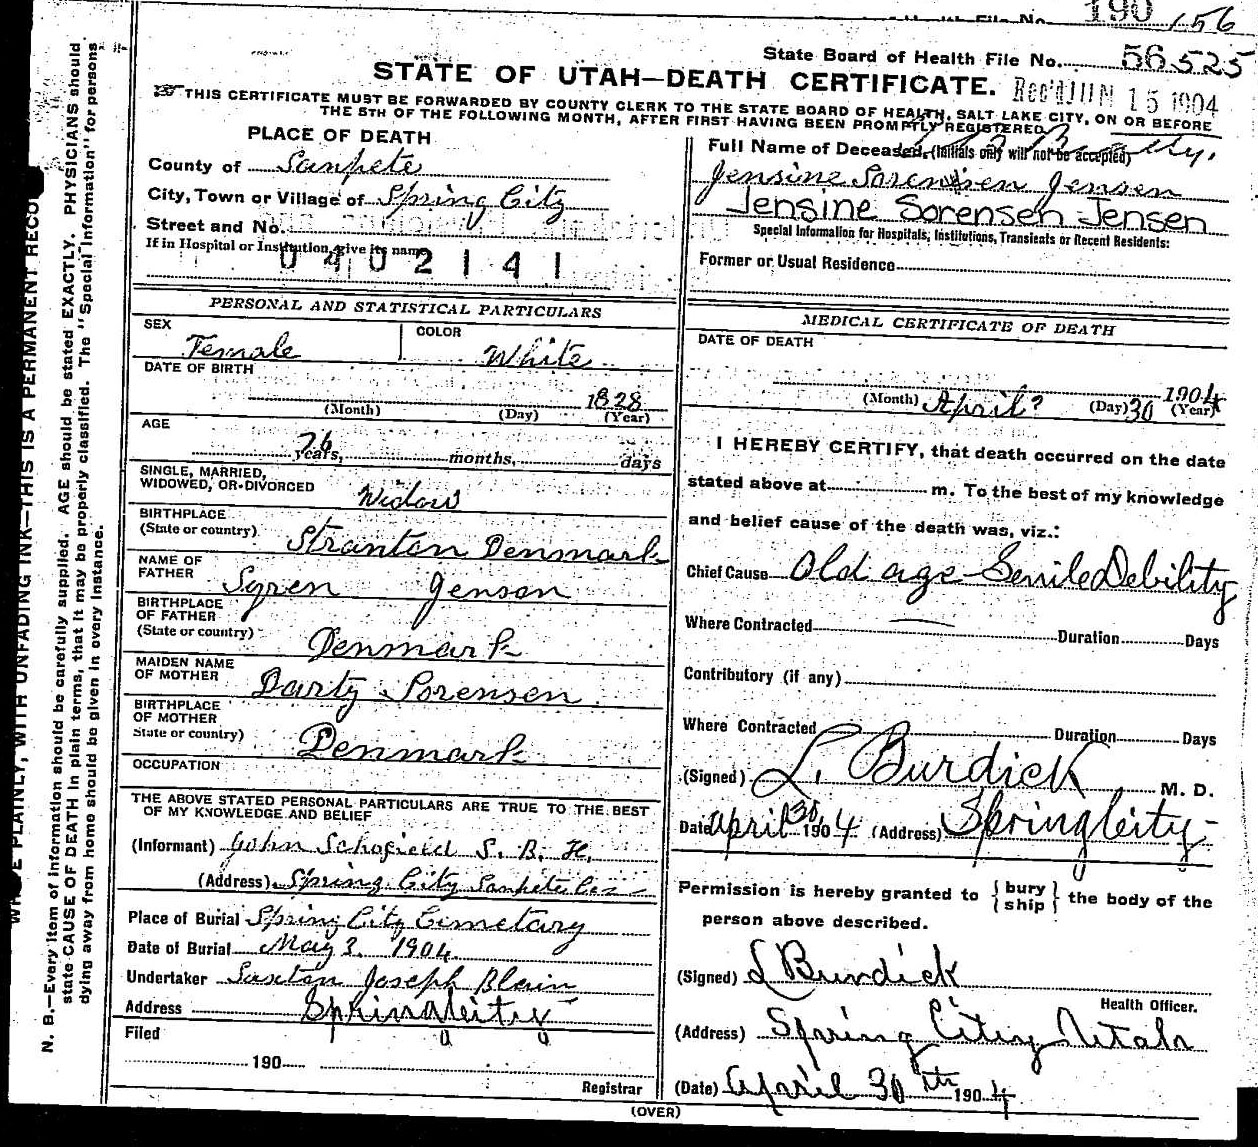 190 156
State Board of Health File No. 56525
STATE OF UTAH—DEATH CERTIFICATE.
Rec'd JUN 15 1904
THIS CERTIFICATE MUST BE FORWARDED BY COUNTY CLERK TO THE STATE BOARD OF HEALTH, SALT LAKE CITY, ON OR BEFORE
THE 5TH OF THE FOLLOWING MONTH, AFTER FIRST HAVING BEEN PROMPTLY REGISTERED.
PLACE OF DEATH
County of Sanpete
City, Town or Village of Spring City
Street and No.
If in Hospital or Institution, give its name
0402141
Full Name of Deceased. (Initials only will not be accepted)
Jensine Sorensen Jensen
Jensine Sorensen Jensen
Special Information for Hospitals, Institutions, Transients or Recent Residents:
Former or Usual Residence
PERSONAL AND STATISTICAL PARTICULARS
SEX Female
COLOR White
DATE OF BIRTH
1828
(Month) (Day) (Year)
AGE
76 years, months, days
SINGLE, MARRIED,
WIDOWED, OR DIVORCED Widow
BIRTHPLACE
(State or country) Stranton Denmark
NAME OF
FATHER Syren Jenson
BIRTHPLACE
OF FATHER
(State or country) Denmark
MAIDEN NAME
OF MOTHER Darty Sorensen
BIRTHPLACE
OF MOTHER
State or country) Denmark
OCCUPATION
THE ABOVE STATED PERSONAL PARTICULARS ARE TRUE TO THE BEST
OF MY KNOWLEDGE AND BELIEF
(Informant) John Schofield S. B. H.
(Address) Spring City Sanpete Co
Place of Burial Spring City Cemetary
Date of Burial May 3. 1904
Undertaker Sexton Joseph Blain
Address Spring City
Filed
190
Registrar
MEDICAL CERTIFICATE OF DEATH
DATE OF DEATH
1904
(Month) April? (Day) 30 (Year)
I HEREBY CERTIFY, that death occurred on the date
stated above at m. To the best of my knowledge
and belief cause of the death was, viz.:
Chief Cause Old age Senile Debility
Where Contracted Duration Days
Contributory (if any)
Where Contracted Duration Days
(Signed) L. Burdick M. D.
Date April 30 1904 (Address) Spring City
Permission is hereby granted to { bury
ship } the body of the
person above described.
(Signed) L Burdick
Health Officer.
(Address) Spring City Utah
(Date) April 30th 1904
(OVER)
WRITE PLAINLY, WITH UNFADING INK—THIS IS A PERMANENT RECO
N. B.—Every item of information should be carefully supplied. AGE should be stated EXACTLY. PHYSICIANS should
state CAUSE OF DEATH in plain terms, that it may be properly classified. The "Special Information" for persons
dying away from home should be given in every instance.